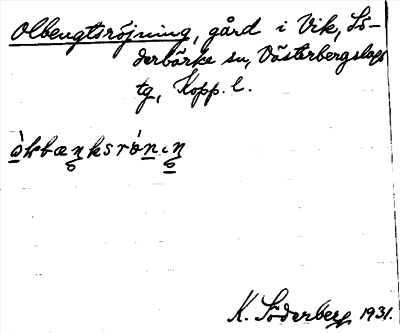 Olbengtsröjning, gård i Vik, Sö-
derbärke sn, Västerbergslags
tg, Kopp. l.
K. Söderberg 1931.